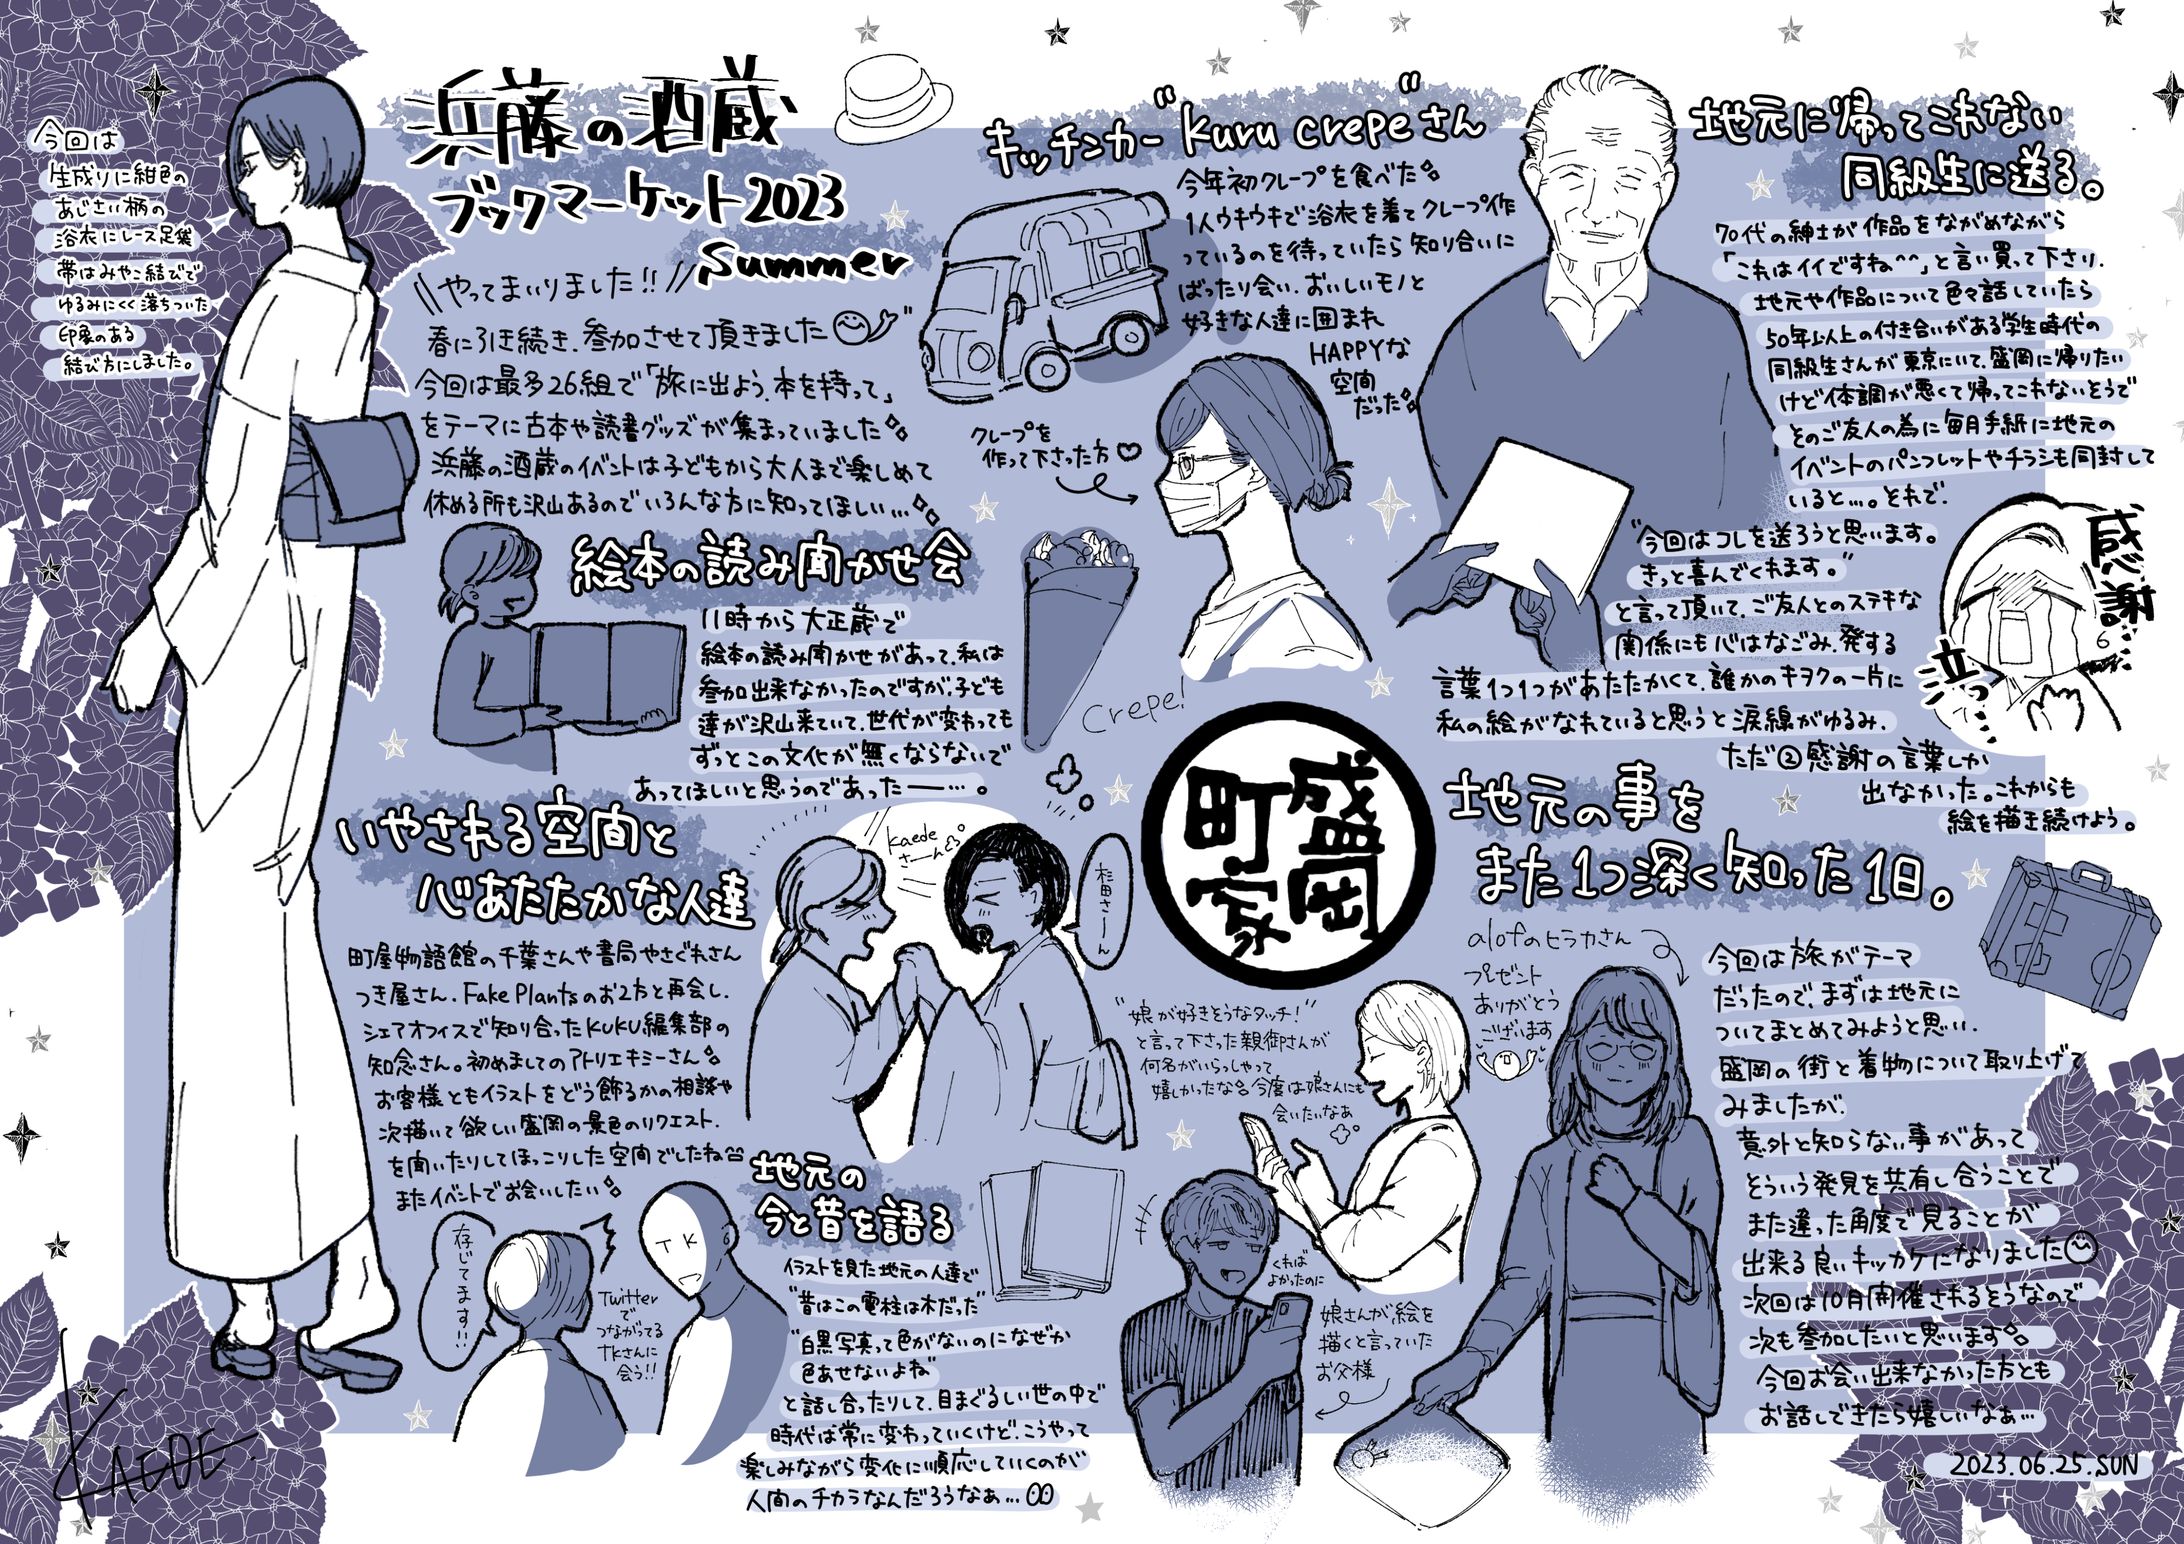 浜藤の酒蔵
ブックマーケット2023
Summer
今回は
生成りに紺色の
あじさい柄の
浴衣にレース足袋
帯はみやこ結びで
ゆるみにくく落ちついた
印象のある
結び方にしました。
\\やってまいりました!!//
春に引き続き、参加させて頂きました
今回は最多26組で「旅に出よう、本を持って」
をテーマに古本や読書グッズが集まっていました
浜藤の酒蔵のイベントは子どもから大人まで楽しめて
休める所も沢山あるのでいろんな方に知ってほしい…
絵本の読み聞かせ会
11時から大正蔵で
絵本の読み聞かせがあって、私は
参加出来なかったのですが、子ども
達が沢山来ていて、世代が変わっても
ずっとこの文化が無くならないで
あってほしいと思うのであったー…。
いやされる空間と
心あたたかな人達
町屋物語館の千葉さんや書局やさぐれさん
つき屋さん、Fake Plantsのお2方と再会し、
シェアオフィスで知り合ったKUKU編集部の
知念さん。初めましてのアトリエキミーさん
お客様ともイラストをどう飾るかの相談や
次描いて欲しい盛岡の景色のリクエスト、
を聞いたりしてほっこりした空間でしたね
またイベントでお会いしたい
kaede
さーん
杉田さーん
存じてます!!
Twitter
で
つながってる
TKさんに
会う!!
TK
地元の
今と昔を語る
イラストを見た地元の人達で
"昔はこの電柱は木だった"
"白黒写真って色がないのになぜか
色あせないよね"
と話し合ったりして、目まぐるしい世の中で
時代は常に変わっていくけど、こうやって
楽しみながら変化に順応していくのが
人間のチカラなんだろうなぁ…
キッチンカー"kuru crepe"さん
今年初クレープを食べた
1人ウキウキで浴衣を着てクレープ作
っているのを待っていたら知り合いに
ばったり会い、おいしいモノと
好きな人達に囲まれ
HAPPYな
空間
だった
クレープを
作って下さった方♡
Crepe!
盛岡
町家
"娘が好きそうなタッチ!"
と言って下さった親御さんが
何名かいらっしゃって
嬉しかったな 今度は娘さんにも
会いたいなぁ
くれば
よかったのに
娘さんが絵を
描くと言っていた
お父様
地元に帰ってこれない
同級生に送る。
70代の紳士が作品をながめながら
「これはイイですね^^」と言い買って下さり、
地元や作品について色々話していたら
50年以上の付き合いがある学生時代の
同級生さんが東京にいて、盛岡に帰りたい
けど体調が悪くて帰ってこれないそうで
そのご友人の為に毎月手紙に地元の
イベントのパンフレットやチラシも同封して
いると…。それで、
"今回はコレを送ろうと思います。
きっと喜んでくれます。"
と言って頂いて、ご友人とのステキな
関係にも心はなごみ、発する
言葉1つ1つがあたたかくて、誰かのキヲクの一片に
私の絵がなれていると思うと涙線がゆるみ、
ただ②感謝の言葉しか
出なかった。これからも
絵を描き続けよう。
感謝…
泣っ…
地元の事を
また1つ深く知った1日。
alofのヒラカさん
プレゼント
ありがとう
ございます
今回は旅がテーマ
だったので、まずは地元に
ついてまとめてみようと思い、
盛岡の街と着物について取り上げて
みましたが、
意外と知らない事があって
そういう発見を共有し合うことで
また違った角度で見ることが
出来る良いキッカケになりました
次回は10月開催されるそうなので
次も参加したいと思います
今回お会い出来なかった方とも
お話しできたら嬉しいなぁ…
2023.06.25.SUN
KAEDE